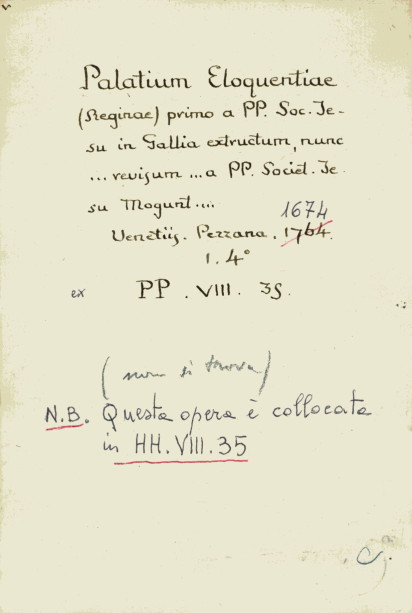 Palatium Eloquentiae
(Reginae) primo a PP. Soc. Je-
su in Gallia extructum, nunc
... revisum ... a PP. Societ. Je
su Mogunt....
1674
Venetiis. Pezzana. 1764.
1. 4°
ex PP. VIII. 35.
(non si trova)
N.B. Questa opera è collocata
in HH. VIII. 35